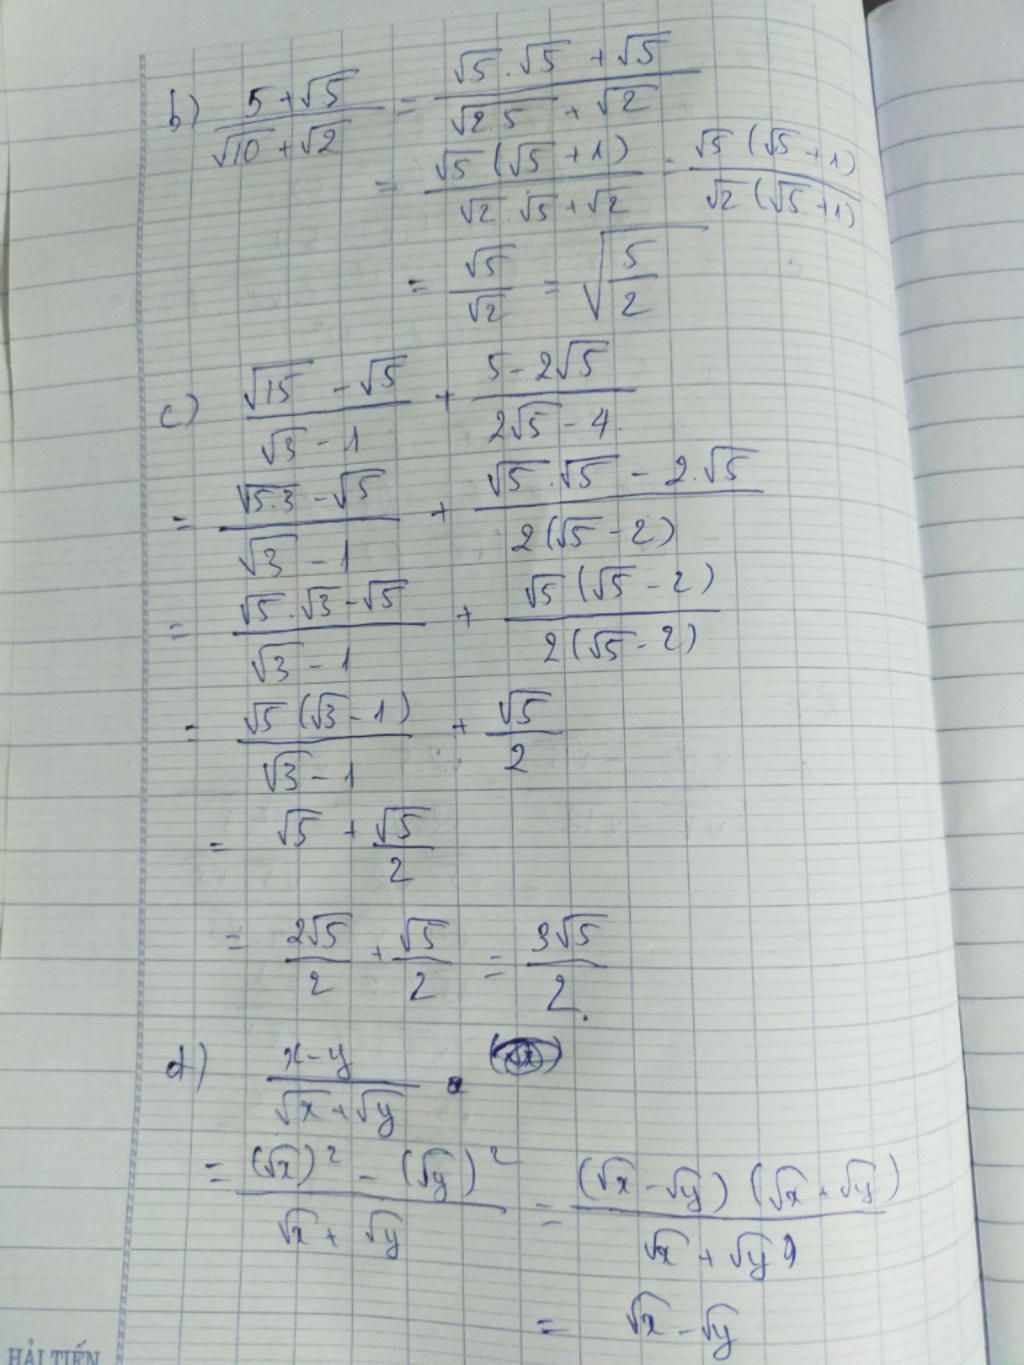 b) (5 + √5)/(√10 + √2) = (√5 . √5 + √5)/(√2 5 + √2)
= (√5 (√5 + 1))/(√2 . √5 + √2) = (√5 (√5 + 1))/(√2 (√5 + 1))
= √5/√2 = √(5/2)
c) (√15 - √5)/(√3 - 1) + (5 - 2√5)/(2√5 - 4)
= (√5.3 - √5)/(√3 - 1) + (√5 . √5 - 2.√5)/(2(√5 - 2))
= (√5 . √3 - √5)/(√3 - 1) + (√5 (√5 - 2))/(2(√5 - 2))
= (√5 (√3 - 1))/(√3 - 1) + √5/2
= √5 + √5/2
= 2√5/2 + √5/2 = 3√5/2.
d) (x - y)/(√x + √y)
= ((√x)² - (√y)²)/(√x + √y) = ((√x - √y) (√x + √y))/(√x + √y)
= √x - √y
HẢI TIẾN